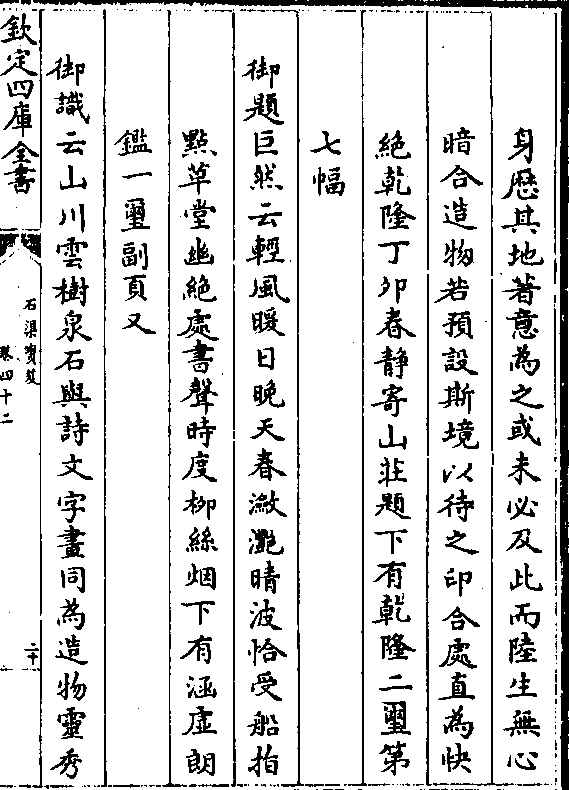 身歴其地著意為之或未必及此而陸生無心
暗合造物若預設斯境以待之印合處直為快
絶乾隆丁卯春静寄山莊題下有乾隆二璽第
七幅
御題巨然云輕風暖日晚天春瀲灔晴波恰受船指
點草堂幽絶處書聲時度柳絲烟下有涵虚朗
鑑一璽副頁又
御識云山川雲樹泉石與詩文字畫同為造物靈秀
欽定四庫全書
石渠寳笈
卷四十二
二十